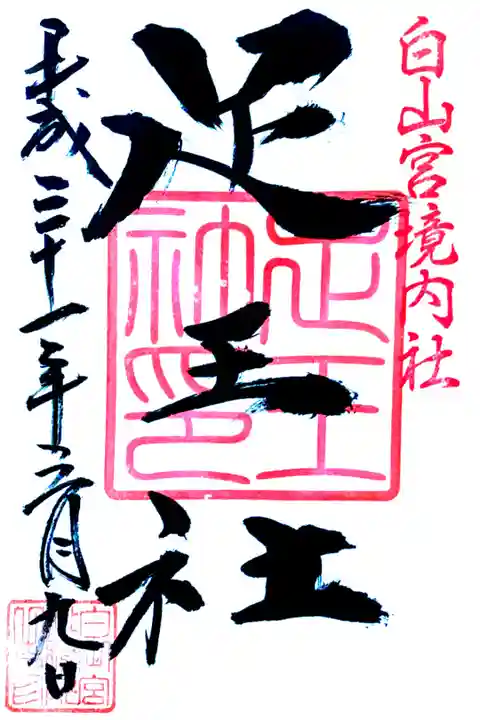 白山宮境内社
足王社
足王
神印
平成三十一年二月九日
白山宮